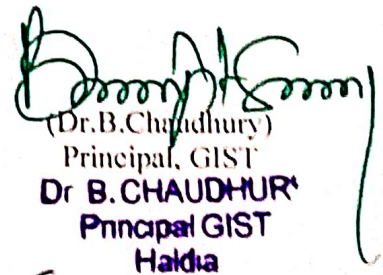 (Dr.B.Chaudhury)
Principal, GIST
Dr B. CHAUDHURY
Principal GIST
Haldia